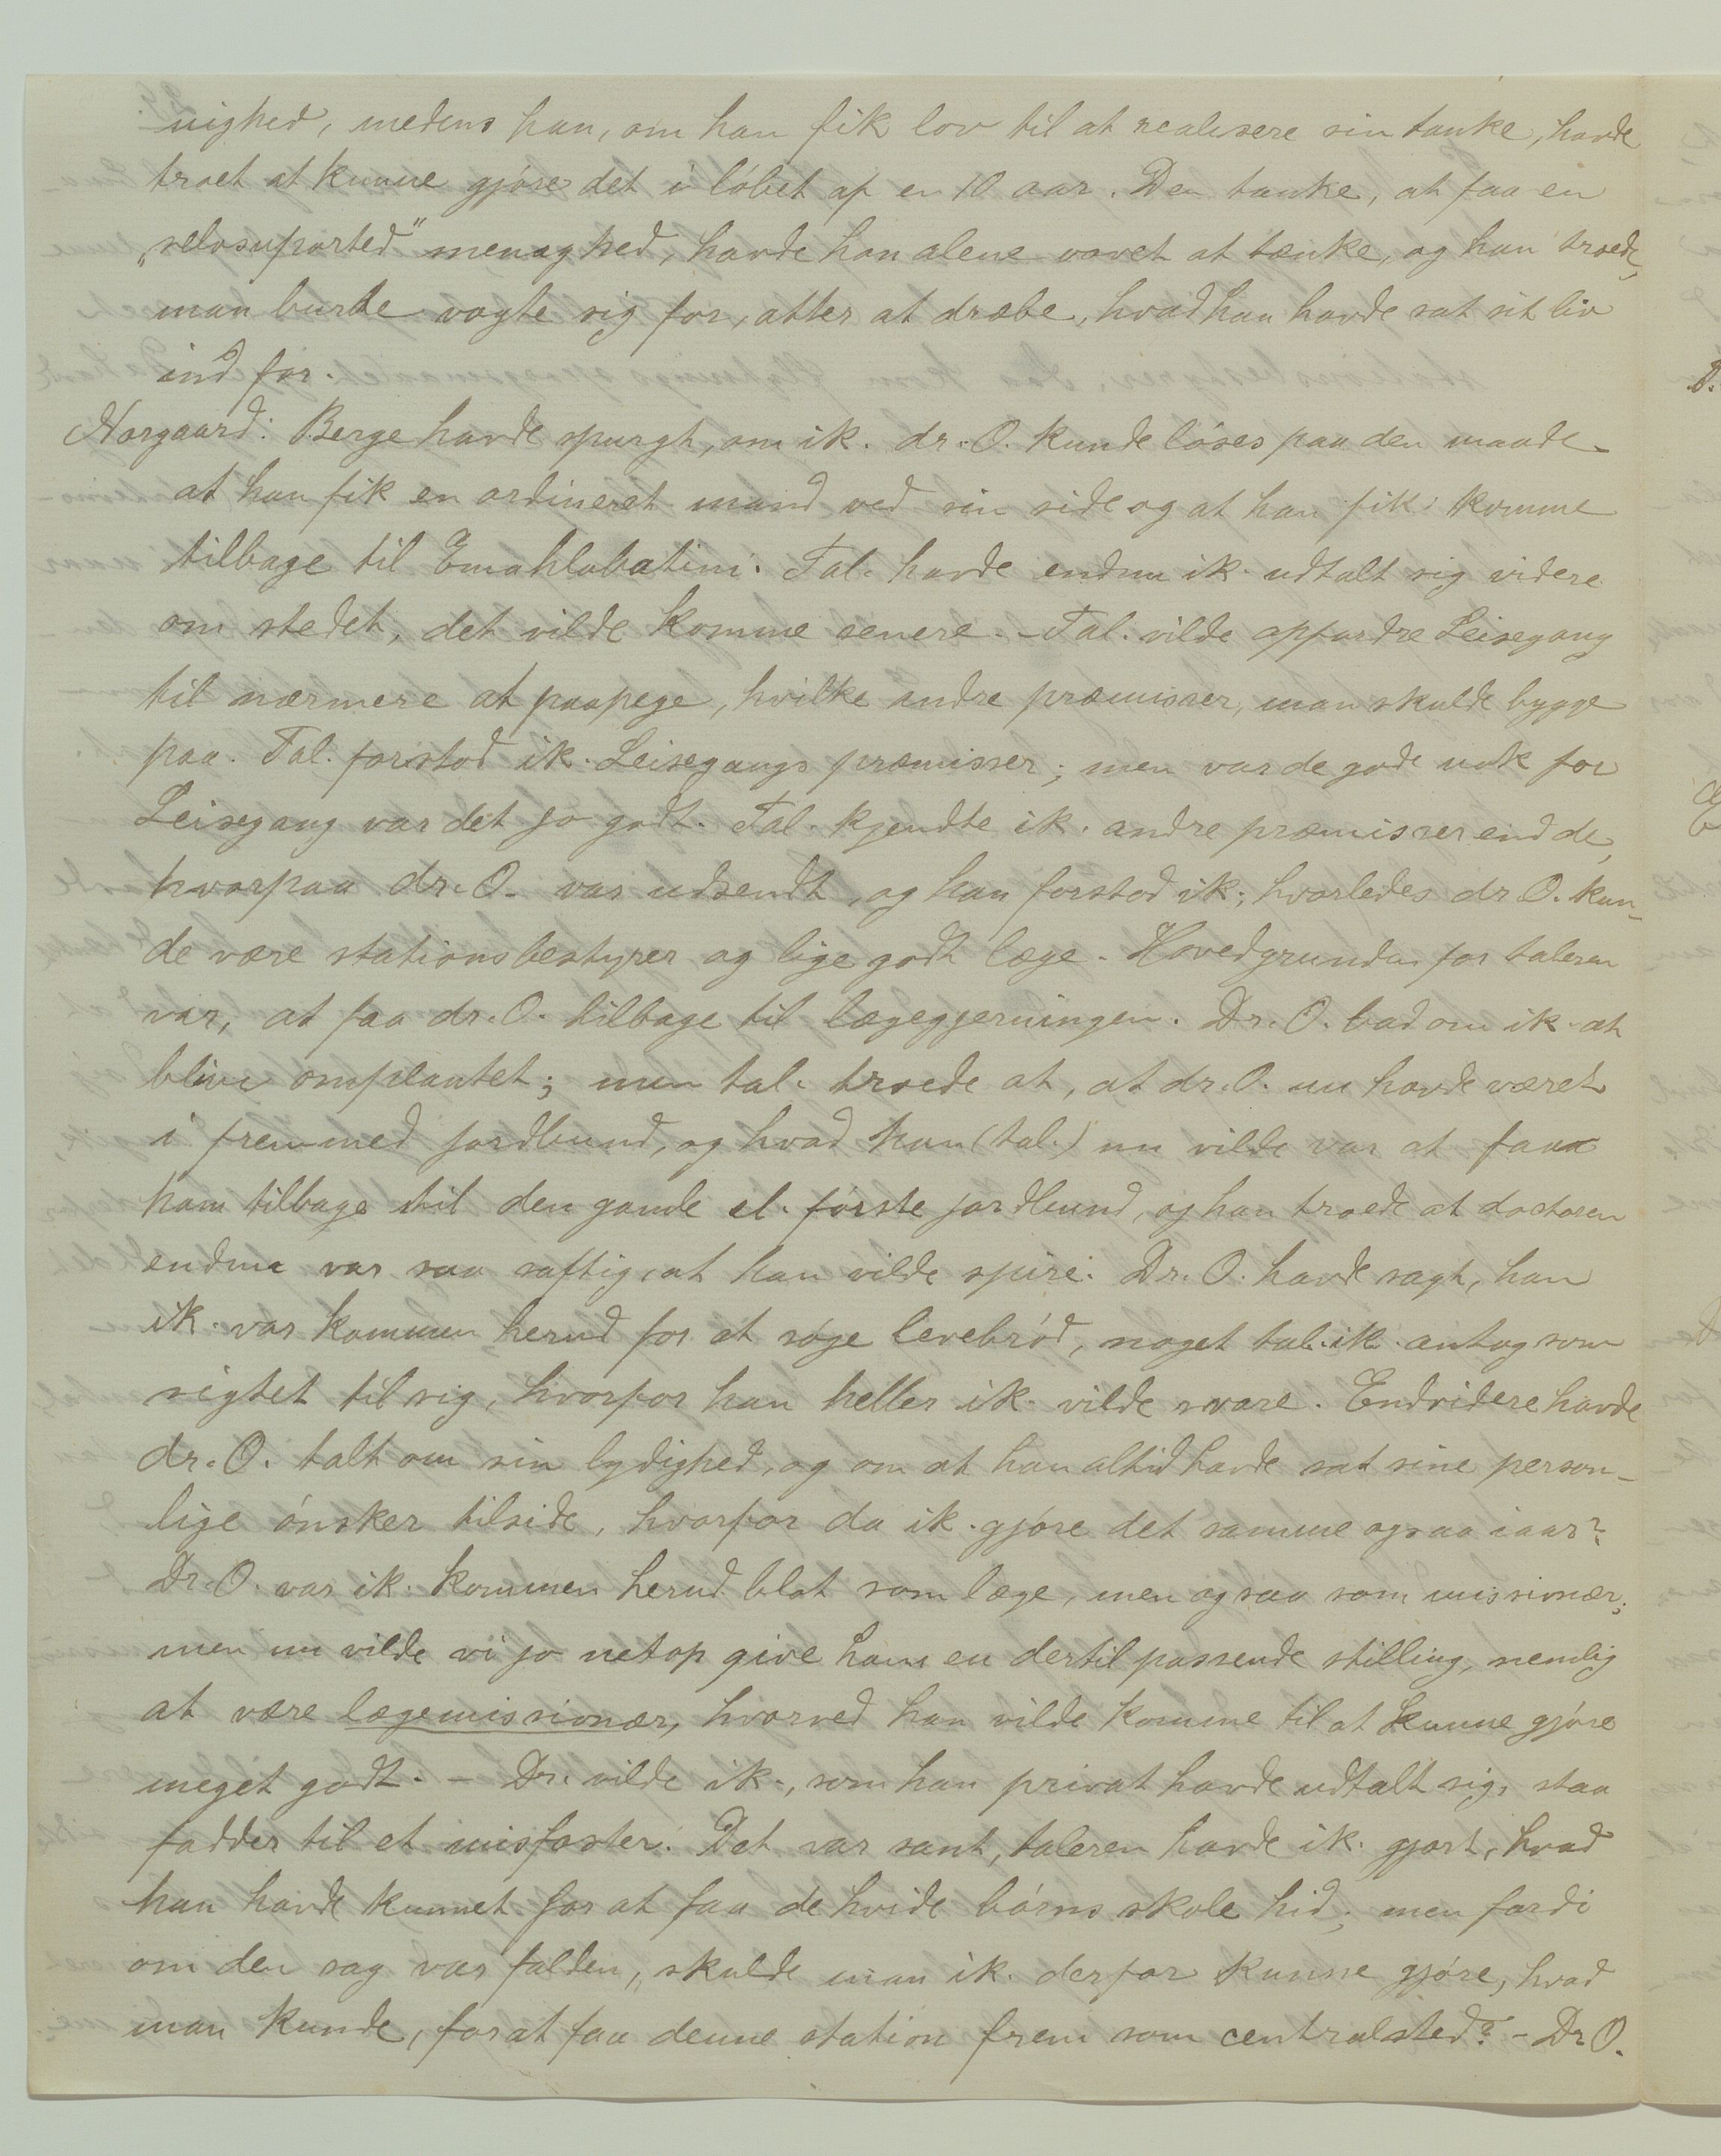 nighed, medens han, om han fik lov til at realisere sin tanke, havde
troet at kunne gjøre det i løbet af en 10 aar. Den tanke, at faa en
„selvsuported" menaghed, havde han alene vovet at tænke, og han troede,
man burde vogte sig for, atter at dræbe, hvad han havde sat sit liv
ind for.
Norgaard: Berge havde spurgt, om ik. dr. O. kunde løses paa den maade
at han fik en ordineret mand ved sin side og at han fik komme
tilbage til Emahlabatini. Tal. havde endnu ik. udtalt sig videre
om stedet, det vilde komme senere. - Tal. vilde opfordre Leisegang
til nærmere at paapege, hvilke andre præmisser, man skulde bygge
paa. Tal. forstod ik. Leisegangs præmisser; men var de gode nok for
Leisegang var det jo godt. Tal. kjendte ik. andre præmisser end de,
hvorpaa dr. O. var udsendt, og han forstod ik., hvorledes dr O. kun-
de være stationsbestyrer og lige godt læge. Hovedgrunden for taleren
var, at faa dr. O. tilbage til lægegjerningen. Dr. O. bad om ik. at
blive omplantet; men tal. troede at, at dr. O. nu havde været
i fremmed jordbund, og hvad han (tal.) nu vilde var at faa
ham tilbage til den gamle el. første jordbund, og han troede at doctoren
endnu var saa saftig, at han vilde spire. Dr. O. havde sagt, han
ik. var kommen herud for at søge levebrød, noget tal. ik. antog som
sigtet til sig, hvorfor han heller ik. vilde svare. Endvidere havde
dr. O. talt om sin lydighed, og om at han altid havde sat sine person-
lige ønsker tilside, hvorfor da ik. gjøre det samme ogsaa iaar?
Dr. O. var ik. kommen herud blot som læge, men ogsaa som missionær;
men nu vilde vi jo netop give ham en dertil passende stilling, nemlig
at være lægemissionær, hvorved han vilde komme til at kunne gjøre
meget godt. - Dr. vilde ik., som han privat havde udtalt sig, staa
fadder til et misfoster. Det var sant, taleren havde ik. gjort, hvad
han havde kunnet for at faa de hvide børns skole hid; men fordi
om den sag var falden, skulde man ik. derfor kunne gjøre, hvad
man kunde, for at faa denne station frem som centralsted? - Dr O.